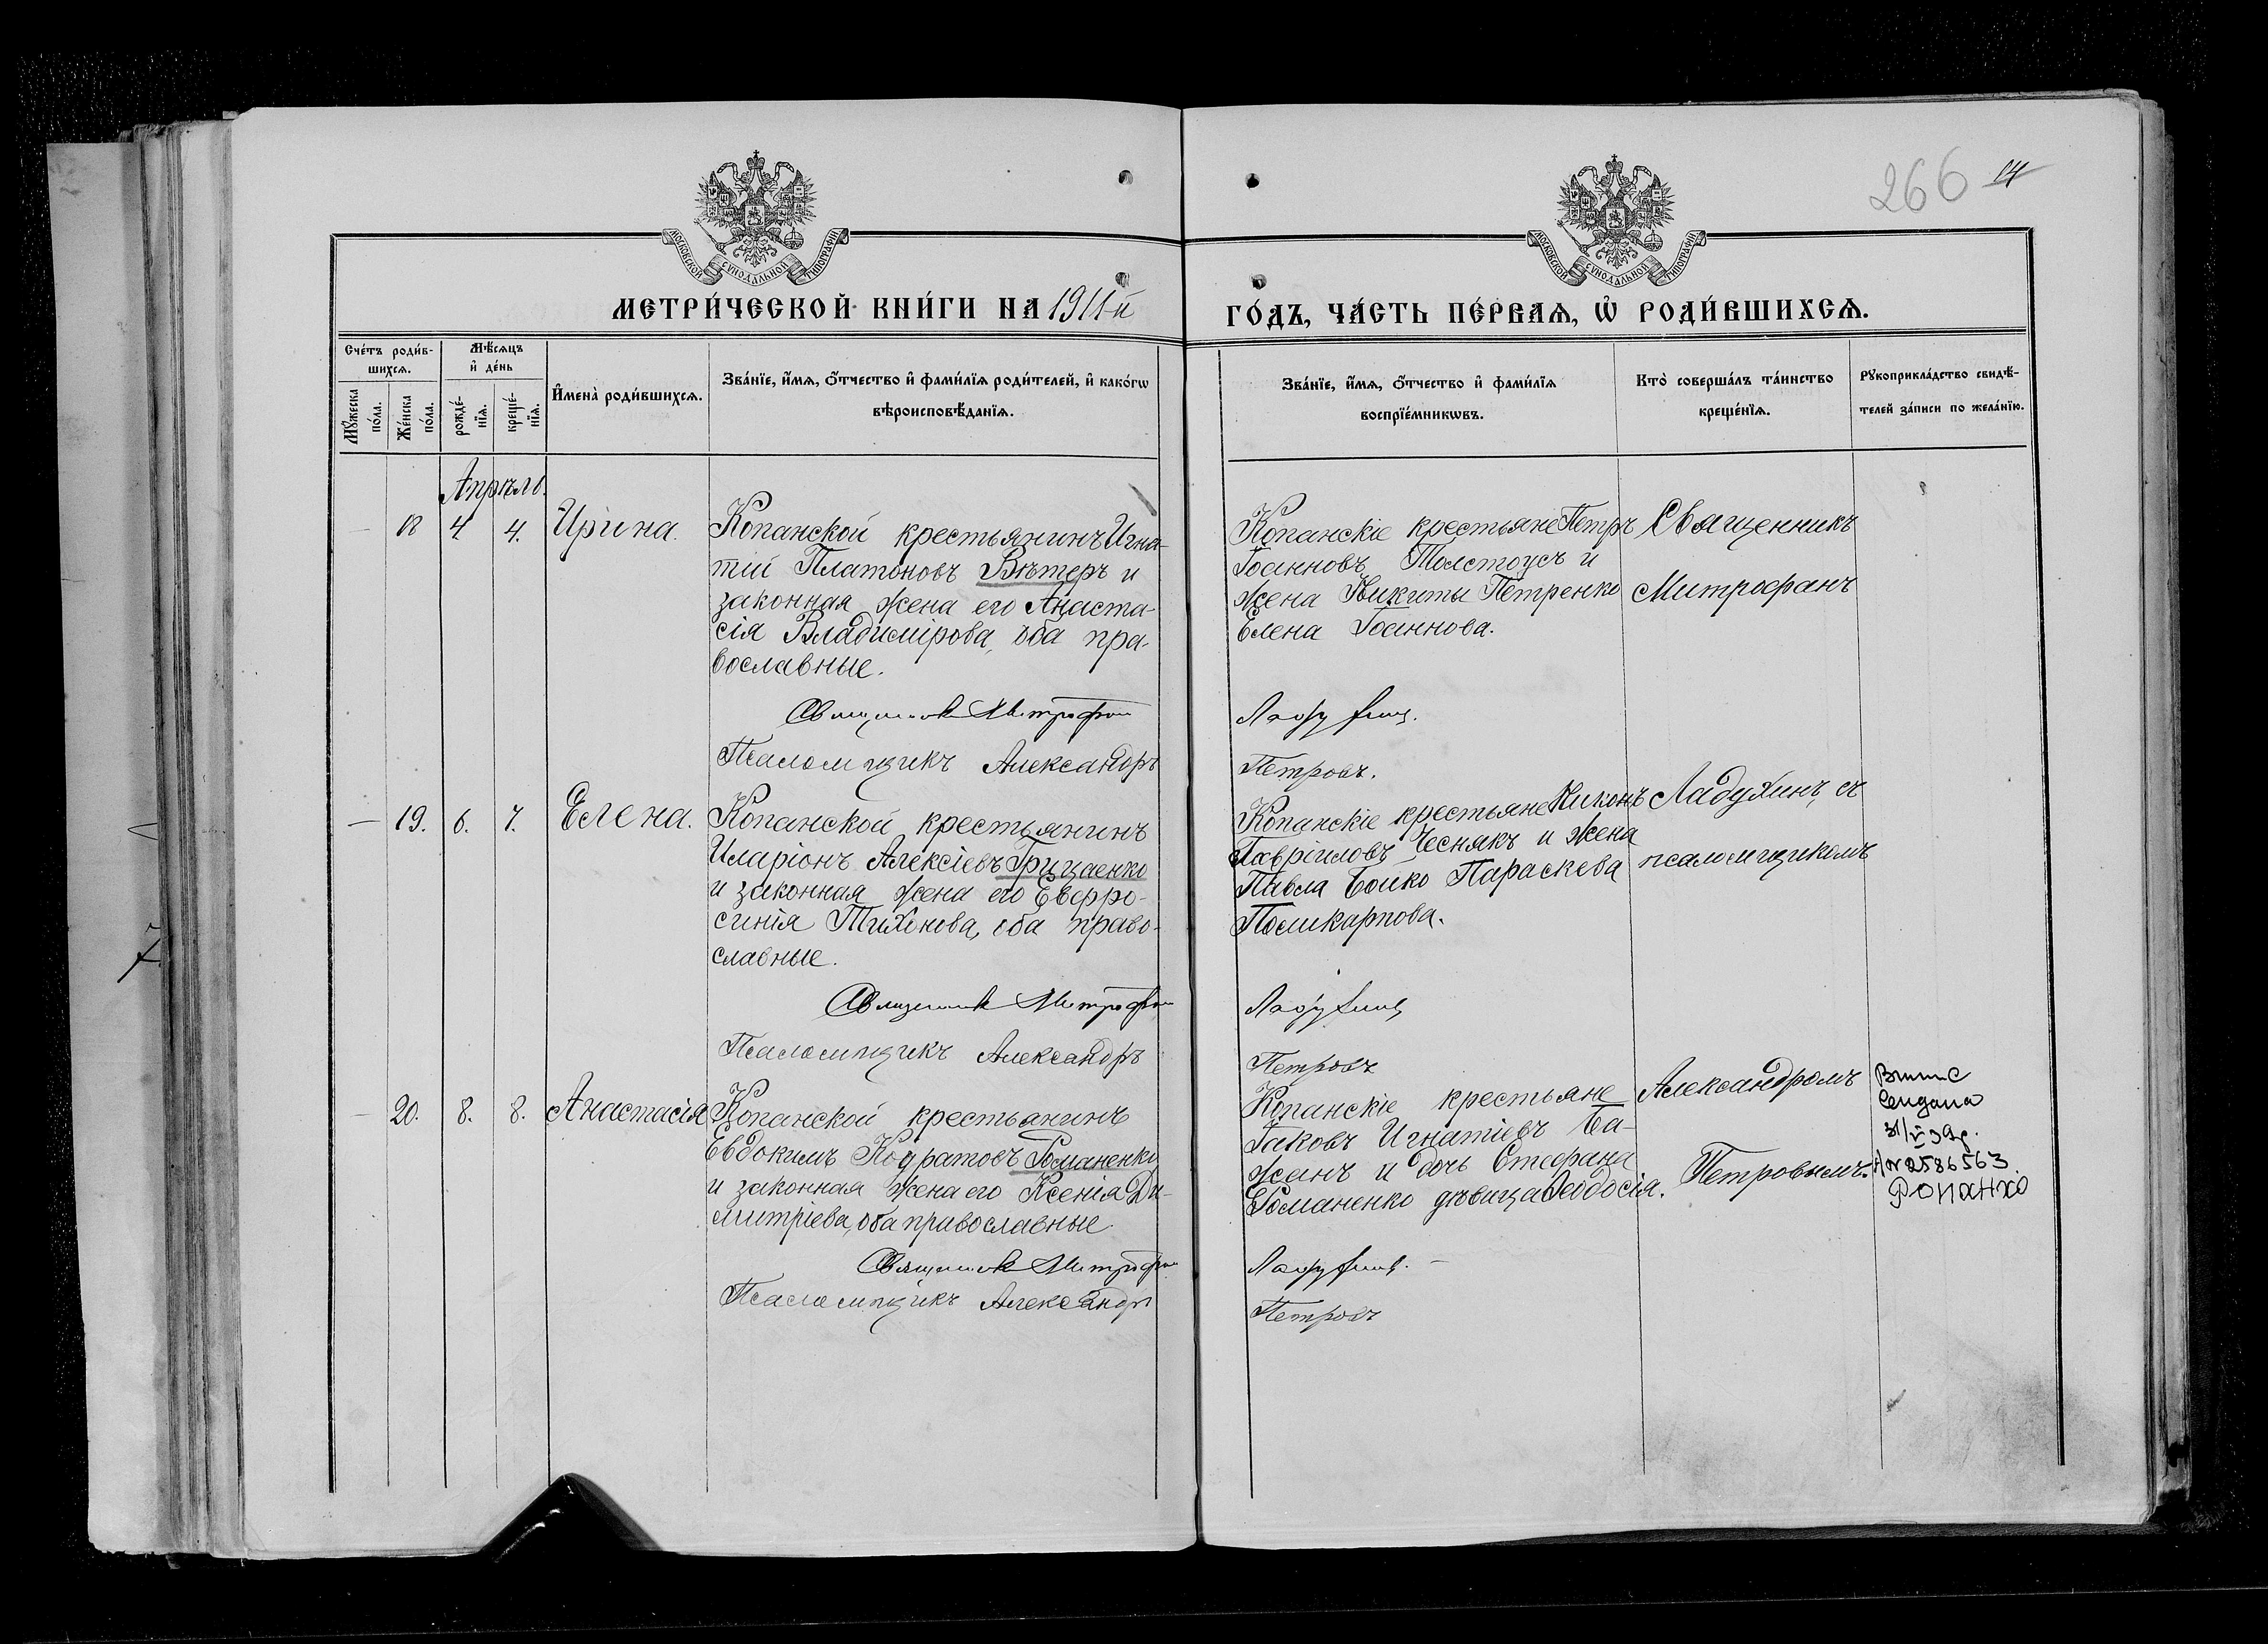 266 14
МОСКОВСКОЙ СѴНОДАЛЬНОЙ ТИПОГРАФІИ
МОСКОВСКОЙ СѴНОДАЛЬНОЙ ТИПОГРАФІИ
МЕТРИ́ЧЕСКОЙ КНИ́ГИ НА 1911-й
ГО́ДЪ, ЧА́СТЬ ПЕ́РВАѦ, Ѡ҆ РОДИ́ВШИХСѦ.
Сче́тъ роди́в-
шихсѧ.
Мꙋ́жеска по́ла.
Же́нска по́ла.
Мѣ́сѧцъ
и҆ де́нь
рожде́-
нїѧ.
креще́-
нїѧ.
И҆мена̀ роди́вшихсѧ.
Зва́нїе, и҆́мѧ, ѻ҆́тчество и҆ фами́лїѧ роди́телей, и҆ како́гѡ
вѣроисповѣ́данїѧ.
Зва́нїе, и҆́мѧ, ѻ҆́тчество и҆ фами́лїѧ
воспрїе́мникѡвъ.
Кто̀ соверша́лъ та́инство
креще́нїѧ.
Рꙋкоприкла́дство свидѣ́-
телей за́писи по жела́нїю.
Апрѣль.
— 18 4 4. Ирина.
Копанской крестьянинъ Игна-
тій Платоновъ Вѣтеръ и
законная жена его Анаста-
сія Владимірова, оба пра-
вославные.
Священникъ Митрофанъ
Псаломщикъ Александръ
Копанскіе крестьяне Петръ
Іоанновъ Толстоусъ и
жена Никиты Петренко
Елена Іоаннова.
Ладухинъ.
Петровъ.
Священникъ
Митрофанъ
— 19. 6. 7. Елена.
Копанской крестьянинъ
Иларіонъ Алексіевъ Грицаенко
и законная жена его Евфро-
синія Тихонова, оба право-
славные.
Священникъ Митрофанъ
Псаломщикъ Александръ
Копанскіе крестьяне Никонъ
Гавріиловъ Чеснякъ и жена
Павла Бойко Параскева
Поликарпова.
Ладухинъ
Петровъ
Ладухинъ, съ
псаломщикомъ
— 20. 8. 8. Анастасія
Копанской крестьянинъ
Евдокимъ Кодратовъ Романенко
и законная жена его Ксенія Ди-
митріева, оба православные.
Священникъ Митрофанъ
Псаломщикъ Александръ
Копанскіе крестьяне
Іаковъ Игнатіевъ Ба-
жанъ и дочь Стефана
Романенко дѣвица Ѳеодосія.
Ладухинъ. —
Петровъ
Александромъ
Петровымъ.
31/V 39г.
№ 2586563